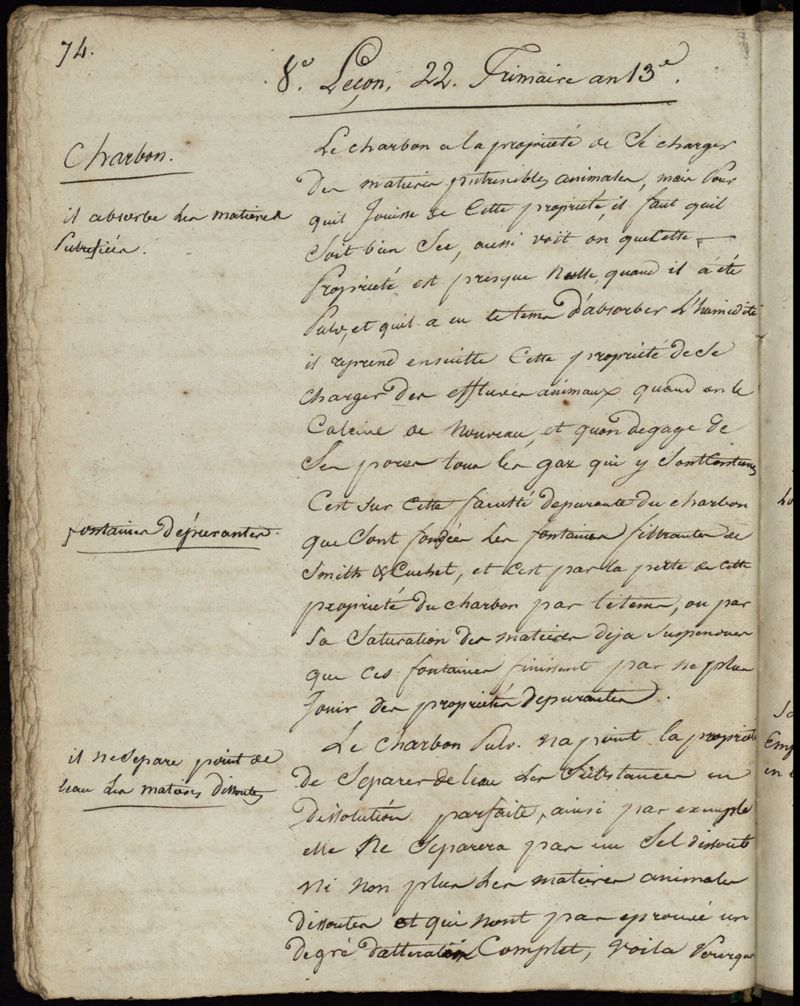 74.
8e. Leçon, 22. Frimaire an 13e.
Charbon.
il absorbe les matieres
Putrefiées.
Le charbon a la propriété de Se charger
des matieres putrescibles animales, mais pour
quil Jouisse de Cette propriété, il faut quil
Soit bien Sec, aussi voit on que cette
Propriété est presque Nulle, quand il a été
Pulv. et quil a eu le tems d'absorber L'humidité
il reprend ensuitte Cette propriété de Se
charger des effluves animaux quand on le
Calcine de Nouveau, et quon degage de
Ses pores tous les gaz qui y Sont Contenus
fontaines Dépurantes.
C'est Sur Cette faculté depurante du charbon
que Sont fondées les fontaines filtrantes de
Smith & Cuchet, et C'est par la perte de cette
propriété du charbon par le tems, ou par
Sa Saturation des matieres deja Suspendues
que ces fontaines finissent par ne plus
Jouir des propriétés depurantes.
il ne Separe point de
leau les matieres Dissoutes
Le Charbon Pulv. na point la propriété
de Separer de leau les Substances en
Dissolution parfaite, ainsi par exemple
elle Ne Separera pas un Sel dissout
Ni non plus les matieres animales
dissoutes et qui nont pas eprouvé un
Degré d'alteration Complet, Voila Pourquoi